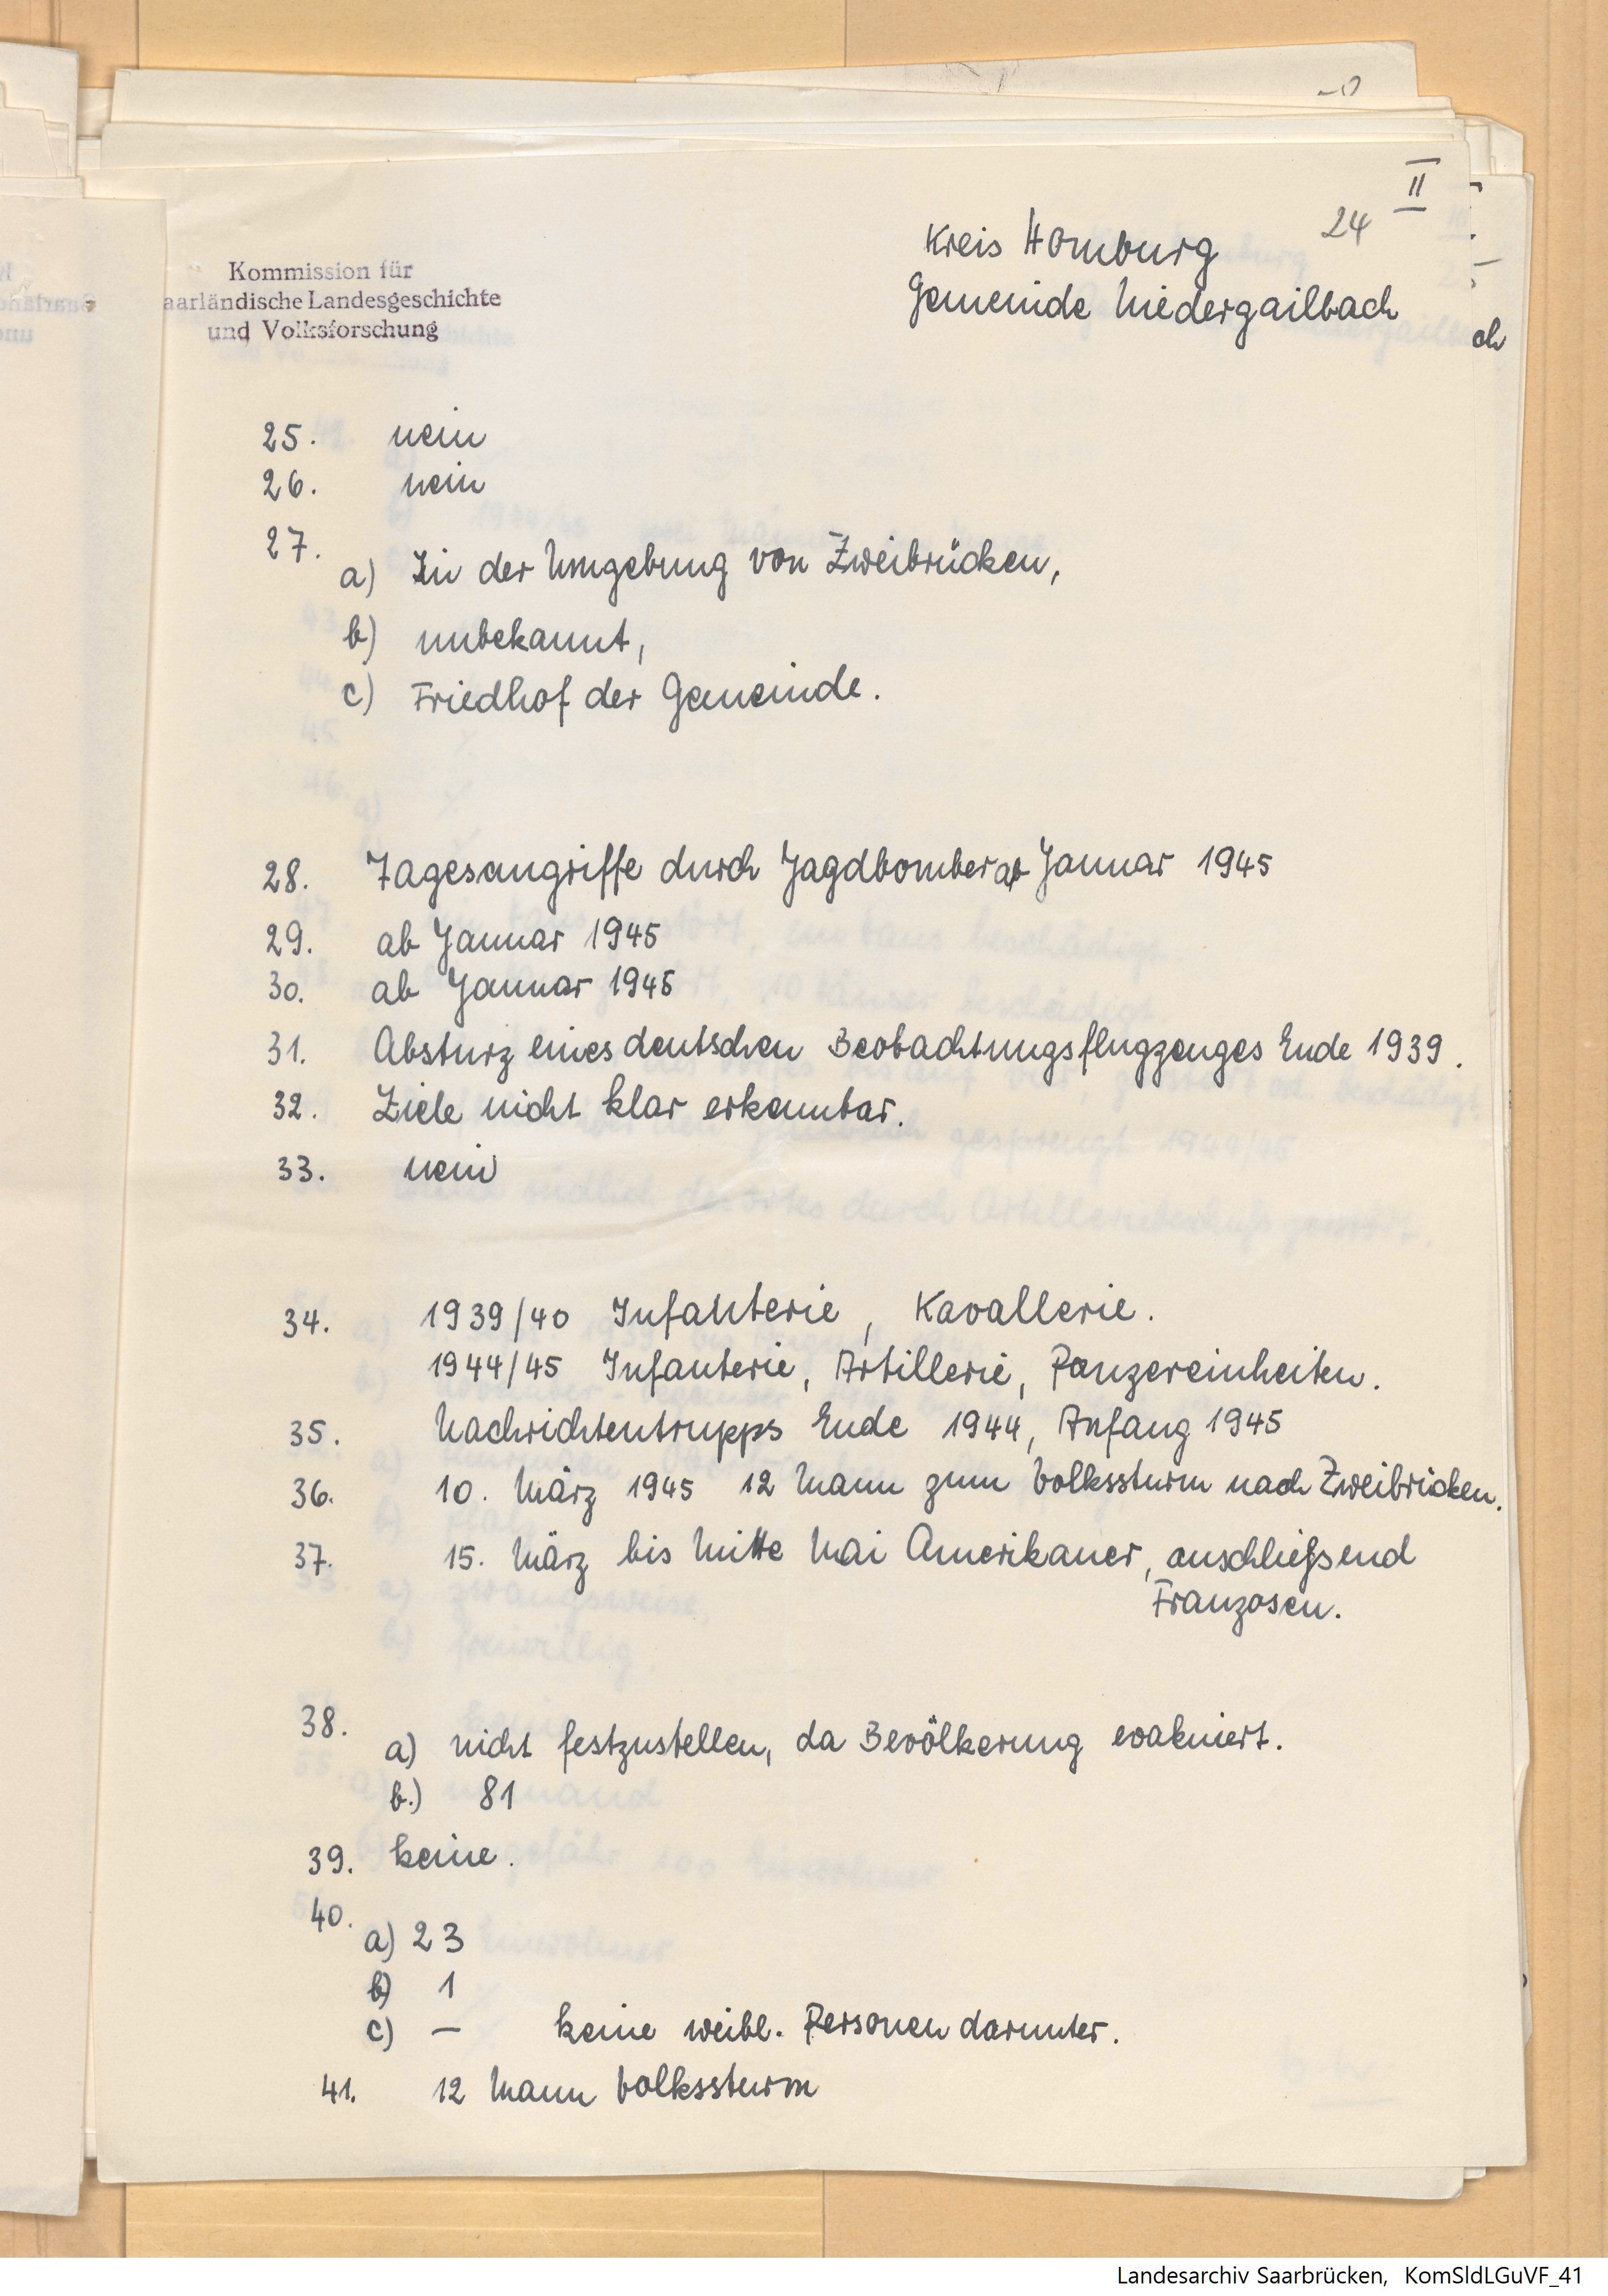 II
24
Kreis Homburg
Gemeinde Niedergailbach
ch
Kommission für
aarländische Landesgeschichte
und Volksforschung
25. nein
26. nein
27.
a) In der Umgebung von Zweibrücken,
b) unbekannt,
c) Friedhof der Gemeinde.
28. Tagesangriffe durch Jagdbomber ab Januar 1945
29. ab Januar 1945
30. ab Januar 1945
31. Absturz eines deutschen Beobachtungsflugzeuges Ende 1939.
32. Ziele nicht klar erkennbar.
33. nein
34. 1939/40 Infanterie, Kavallerie.
1944/45 Infanterie, Artillerie, Panzereinheiten.
35. Nachrichtentrupps Ende 1944, Anfang 1945
36. 10. März 1945 12 Mann zum Volkssturm nach Zweibrücken.
37. 15. März bis Mitte Mai Amerikaner, anschließend
Franzosen.
38.
a) nicht festzustellen, da Bevölkerung evakuiert.
b.) 81
39. keine.
40.
a) 23
b) 1
c) — keine weibl. Personen darunter.
41. 12 Mann Volkssturm
Landesarchiv Saarbrücken, KomSldLGuVF_41